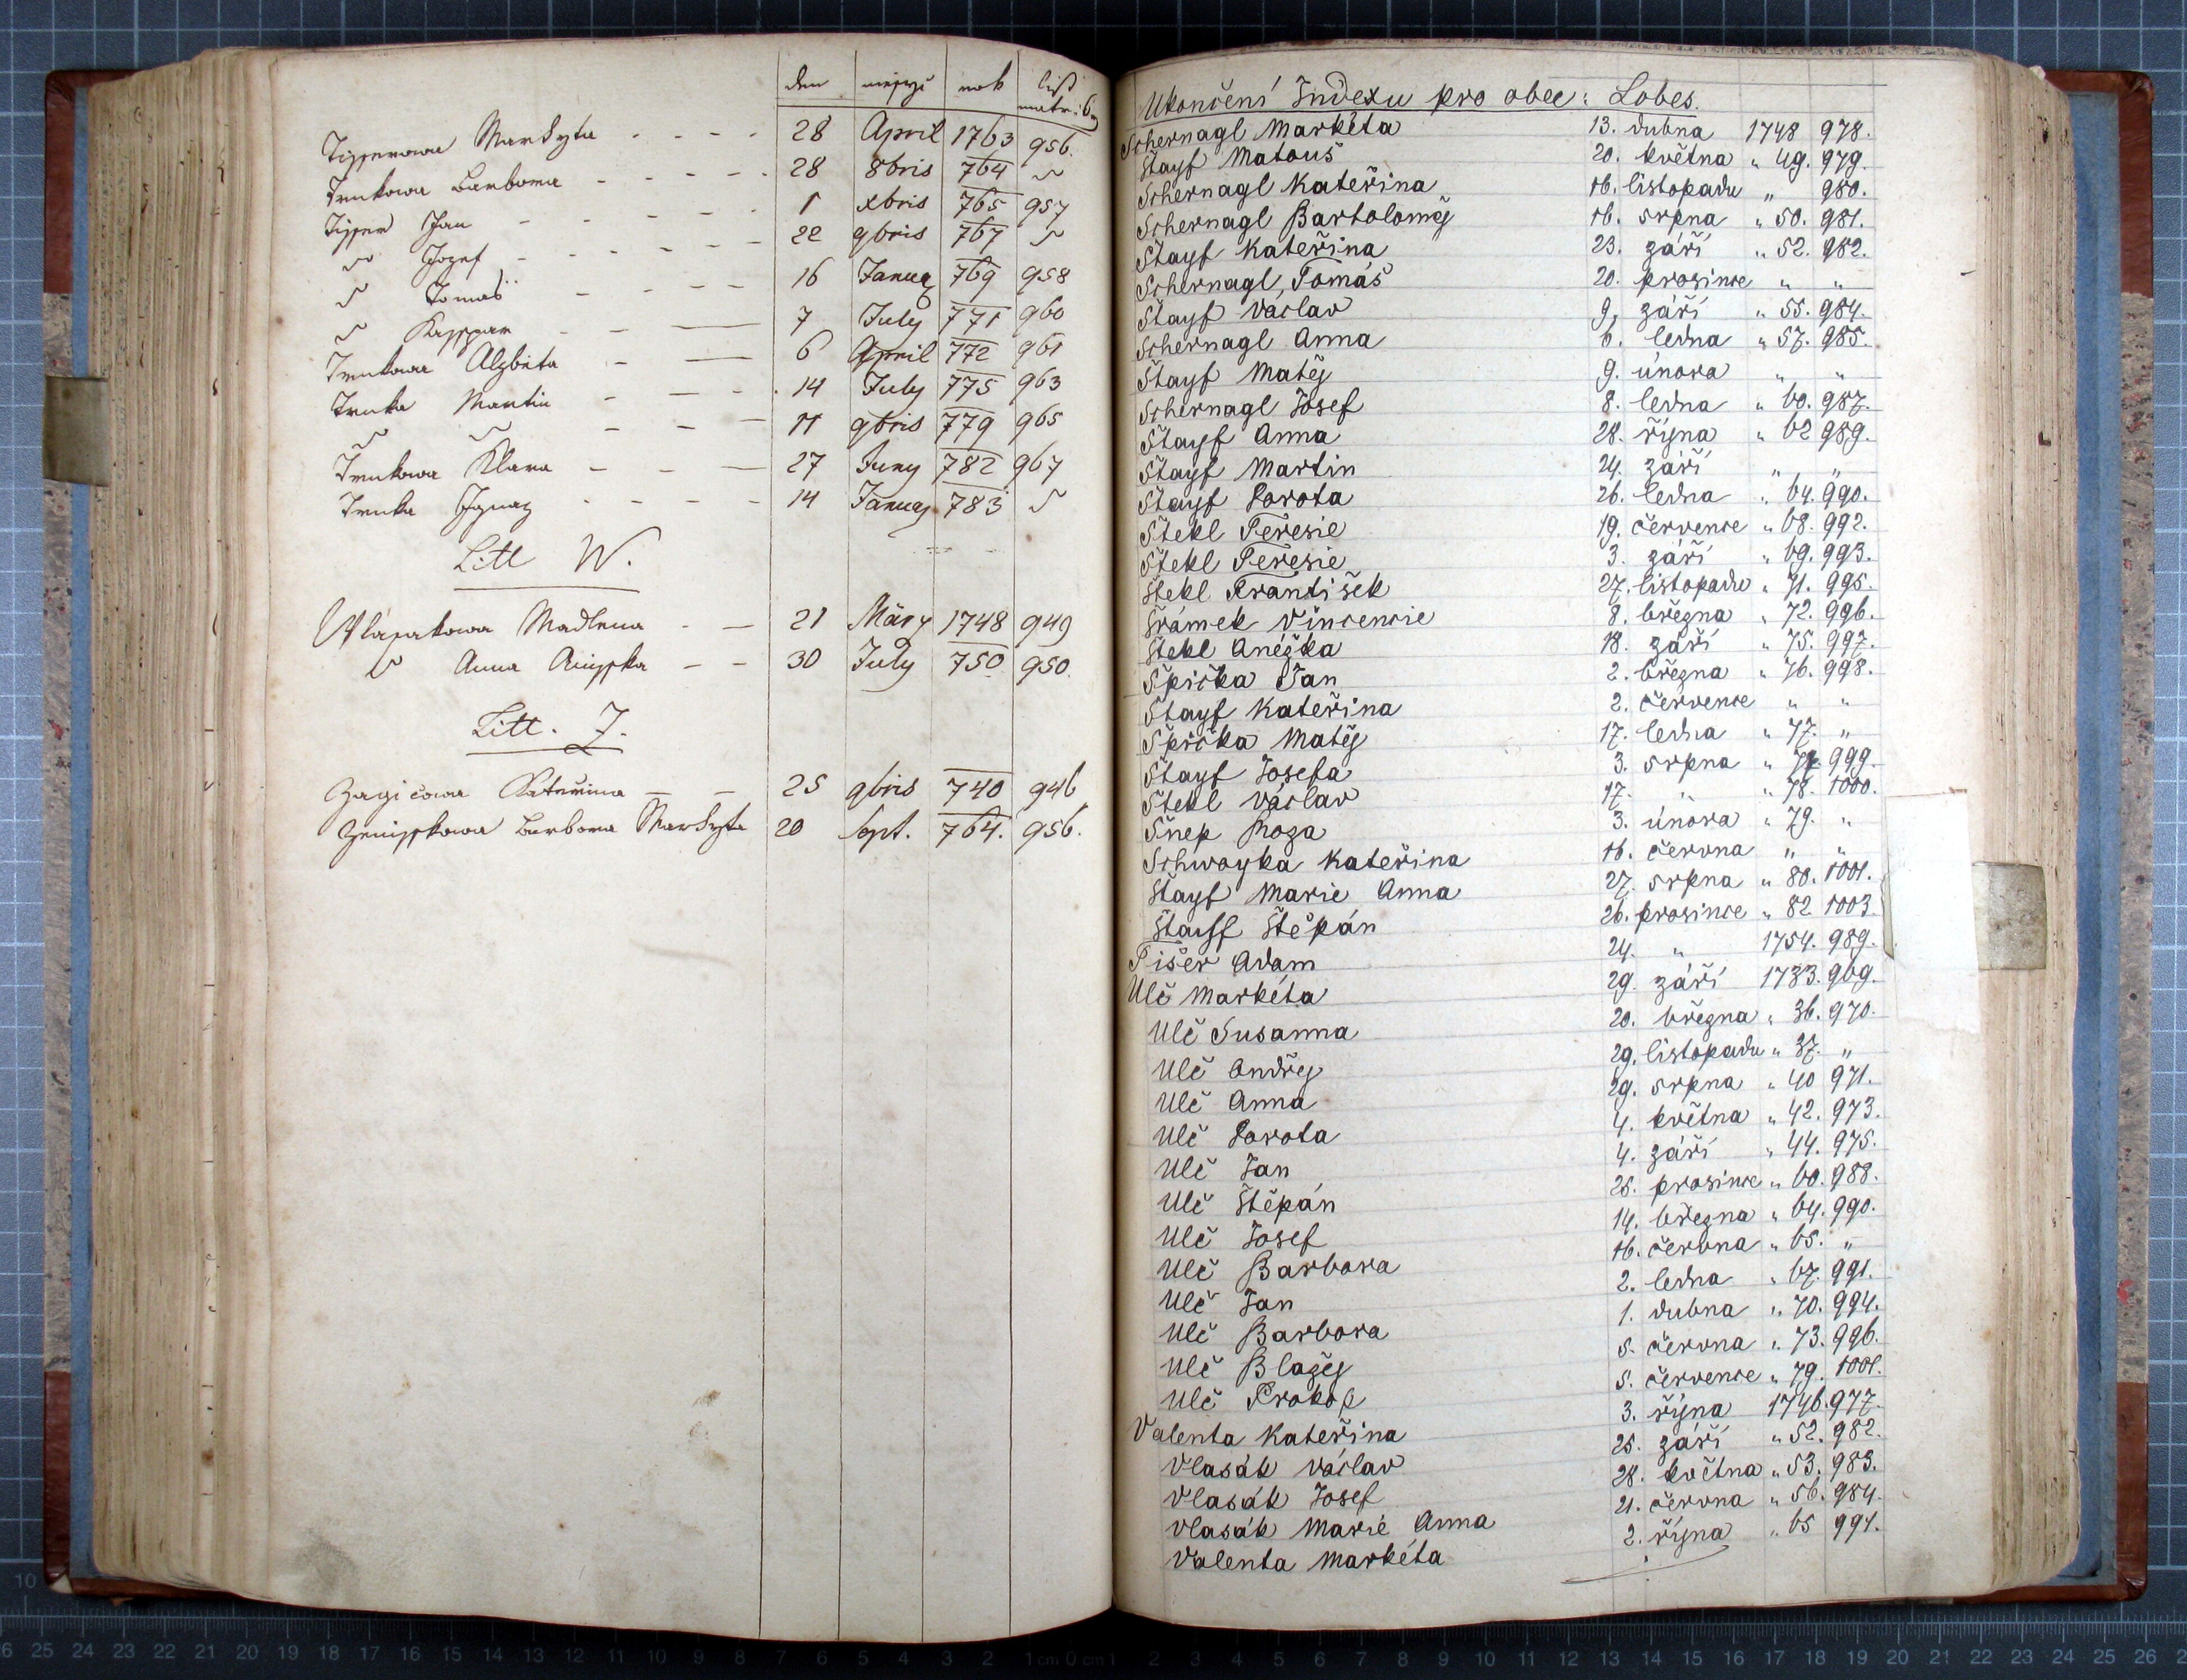 den měsyc rok list matriky
Tisserowa Markyta - - - - 28 April 1763 956.
Trnkowa Barbora - - - - - 28 8bris 764 "
Tisser Jan - - - - 1 xbris 765 957
" Jozef - - - - - 22 9bris 767 "
" Tomass - - - - 16 Januar 769 958
" Kasspar - - - 7 July 771 960
Trnkowa Alzbieta - - 6 April 772 961
Trnka Martin - - - 14 July 775 963
" " - - - 11 9bris 779 965
Trnkowa Klara - - - 27 Juny 782 967
Trnka Ignaz - - - - 14 Januar 783 "
Litt W.
Wlasakowa Madlena - - 21 März 1748 949
" Anna Anisska - - 30 July 750 950.
Litt. Z.
Zagicowa Katerina - - 25 9bris 740 946
Zenisskowa Barbora Markyta 20 Sept. 764. 956.
Ukončení Indexu pro obec: Lobes.
Schernagl Markéta 13. dubna 1748 978.
Štayf Matouš 20. května " 49. 979.
Schernagl Kateřina 16. listopadu " 980.
Schernagl Bartoloměj 16. srpna " 50. 981.
Štayf Kateřina 23. září " 52. 982.
Schernagl Tomáš 20. prosince " "
Štayf Václav 9. září " 55. 984.
Schernagl Anna 6. ledna " 57. 985.
Štayf Matěj 9. února " "
Schernagl Josef 8. ledna " 60. 987.
Štayf Anna 28. října " 62 989.
Štayf Martin 24. září " "
Štayf Dorota 26. ledna " 64. 990.
Štekl Teresie 19. července " 68. 992.
Štekl Teresie 3. září " 69. 993.
Štekl František 27. listopadu " 71. 995.
Šrámek Vincencie 8. března " 72. 996.
Štekl Anéžka 18. září " 75. 997.
Špička Jan 2. března " 76. 998.
Štayf Kateřina 2. července " "
Špička Matěj 17. ledna " 77. "
Štayf Josefa 3. srpna " 77 999.
Štekl Václav 17. " " 78. 1000.
Šnep Roza 3. února " 79. "
Schwoyka Kateřina 16. června " "
Štayf Marie Anna 27. srpna " 80. 1001.
Štaiff Štěpán 26. prosince " 82 1003.
Tišer Adam 24. " 1754. 989.
Ulč Markéta 29. září 1733. 969.
Ulč Susanna 20. března " 36. 970.
Ulč Ondřej 29. listopadu " 37. "
Ulč Anna 29. srpna " 40 971.
Ulč Dorota 4. května " 42. 973.
Ulč Jan 4. září " 44. 975.
Ulč Štěpán 25. prosince " 60. 988.
Ulč Josef 14. března " 64. 990.
Ulč Barbora 16. června " 65. "
Ulč Jan 2. ledna " 67. 991.
Ulč Barbora 1. dubna " 70. 994.
Ulč Blažej 5. června " 73. 996.
Ulč Prokop 5. července " 79. 1001.
Valenta Kateřina 3. října 1746. 977.
Vlasák Václav 25. září " 52. 982.
Vlasák Josef 28. května " 53. 983.
Vlasák Marie Anna 21. června " 56. 984.
Valenta Markéta 2. října " 65 991.